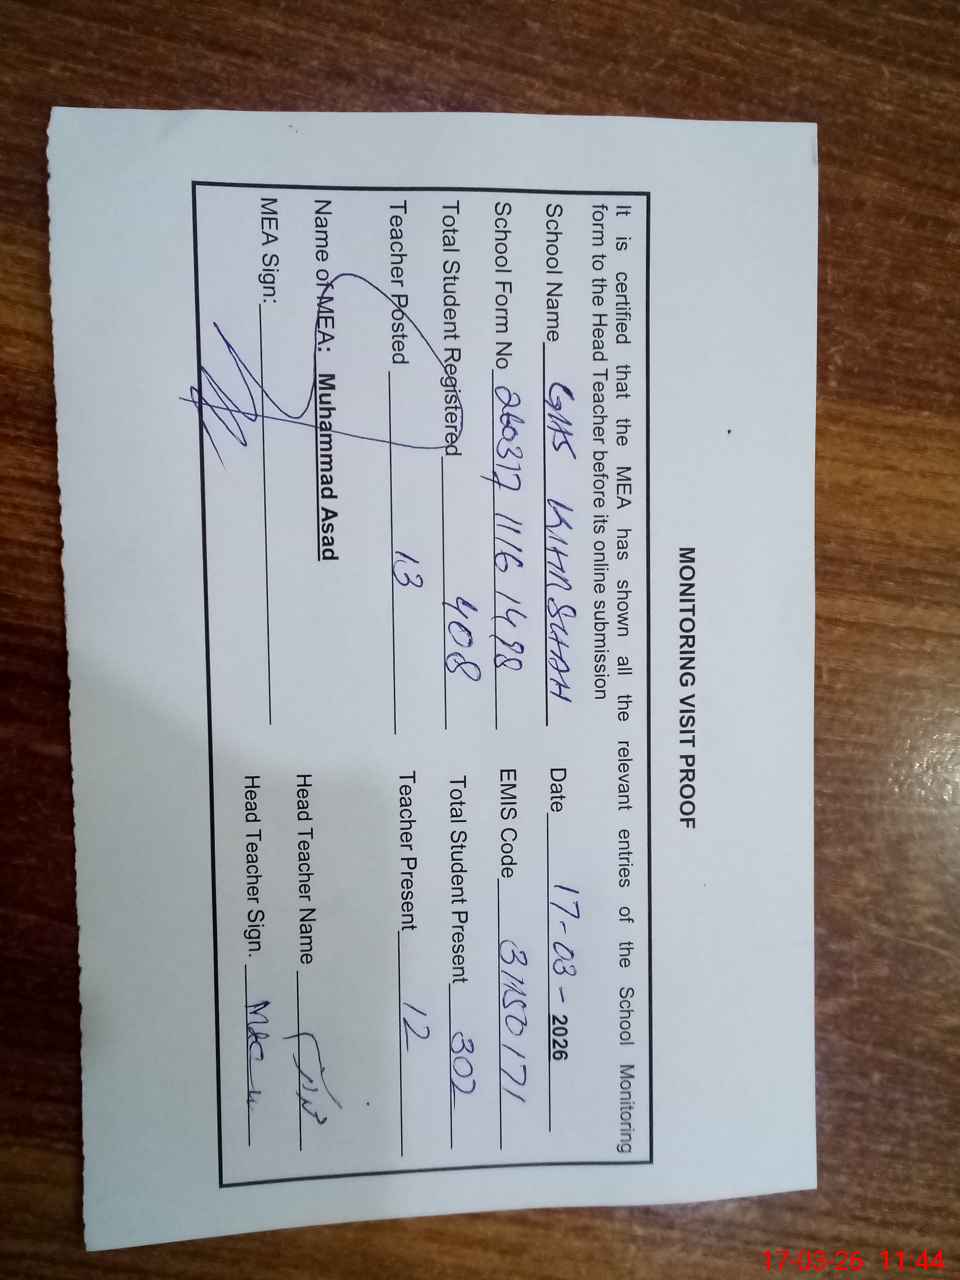 MONITORING VISIT PROOF
It is certified that the MEA has shown all the relevant entries of the School Monitoring
form to the Head Teacher before its online submission
School Name GHS Date 17-03-2026
School Form No 260317 1116 1498 EMIS Code
Total Student Registered 408 Total Student Present 302
Teacher Posted 13 Teacher Present 12
Name of MEA: Muhammad Asad Head Teacher Name
MEA Sign: Head Teacher Sign.
17-03-26 11:44